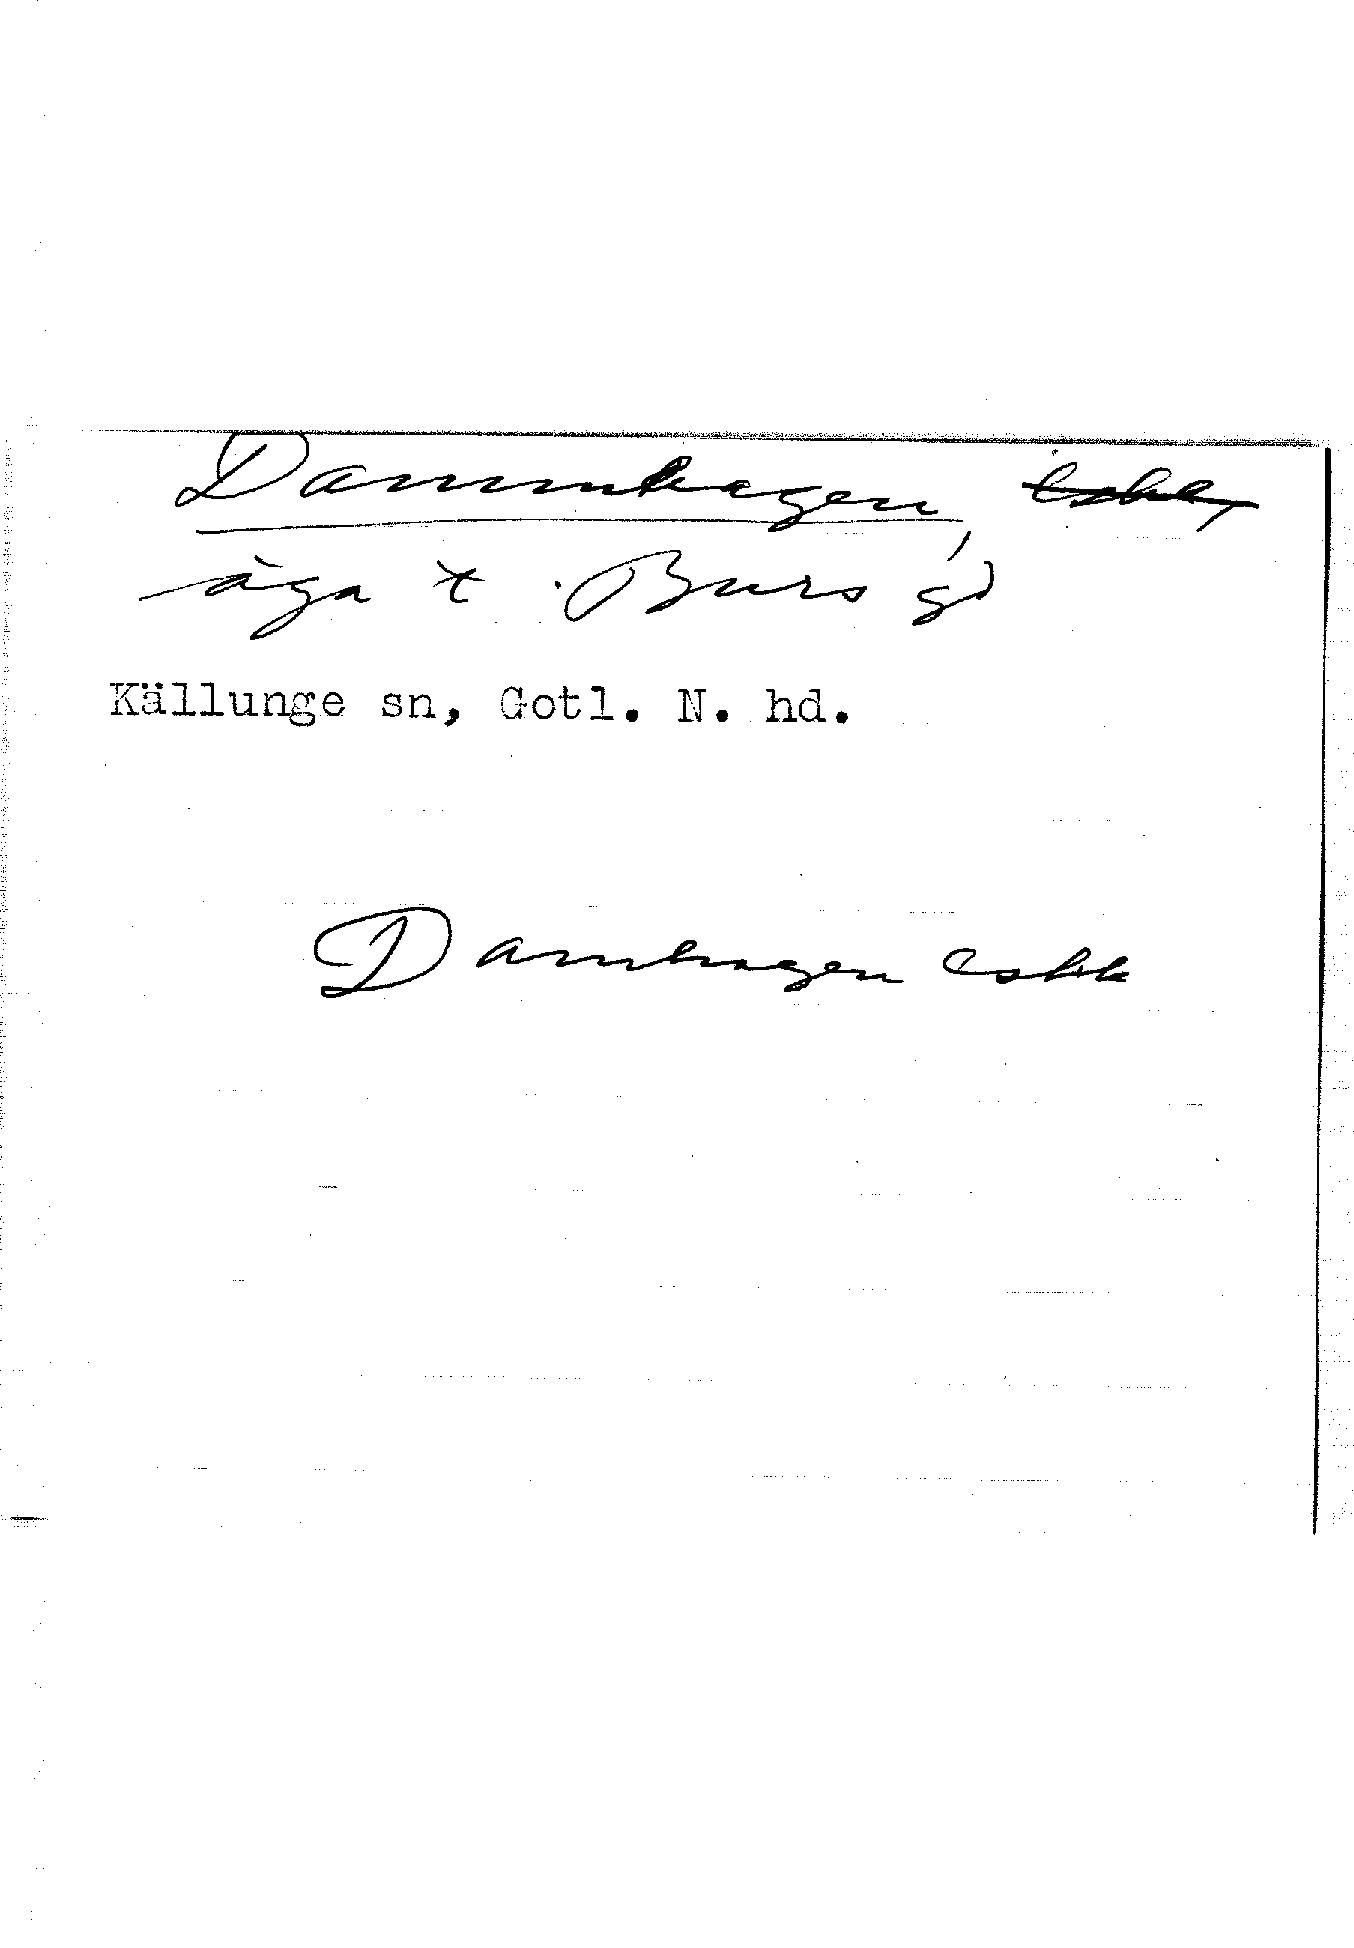 Dammhagen, eskk,
äga t. Burs gd
Källunge sn, Gotl. N. hd.
Damhagen eskk